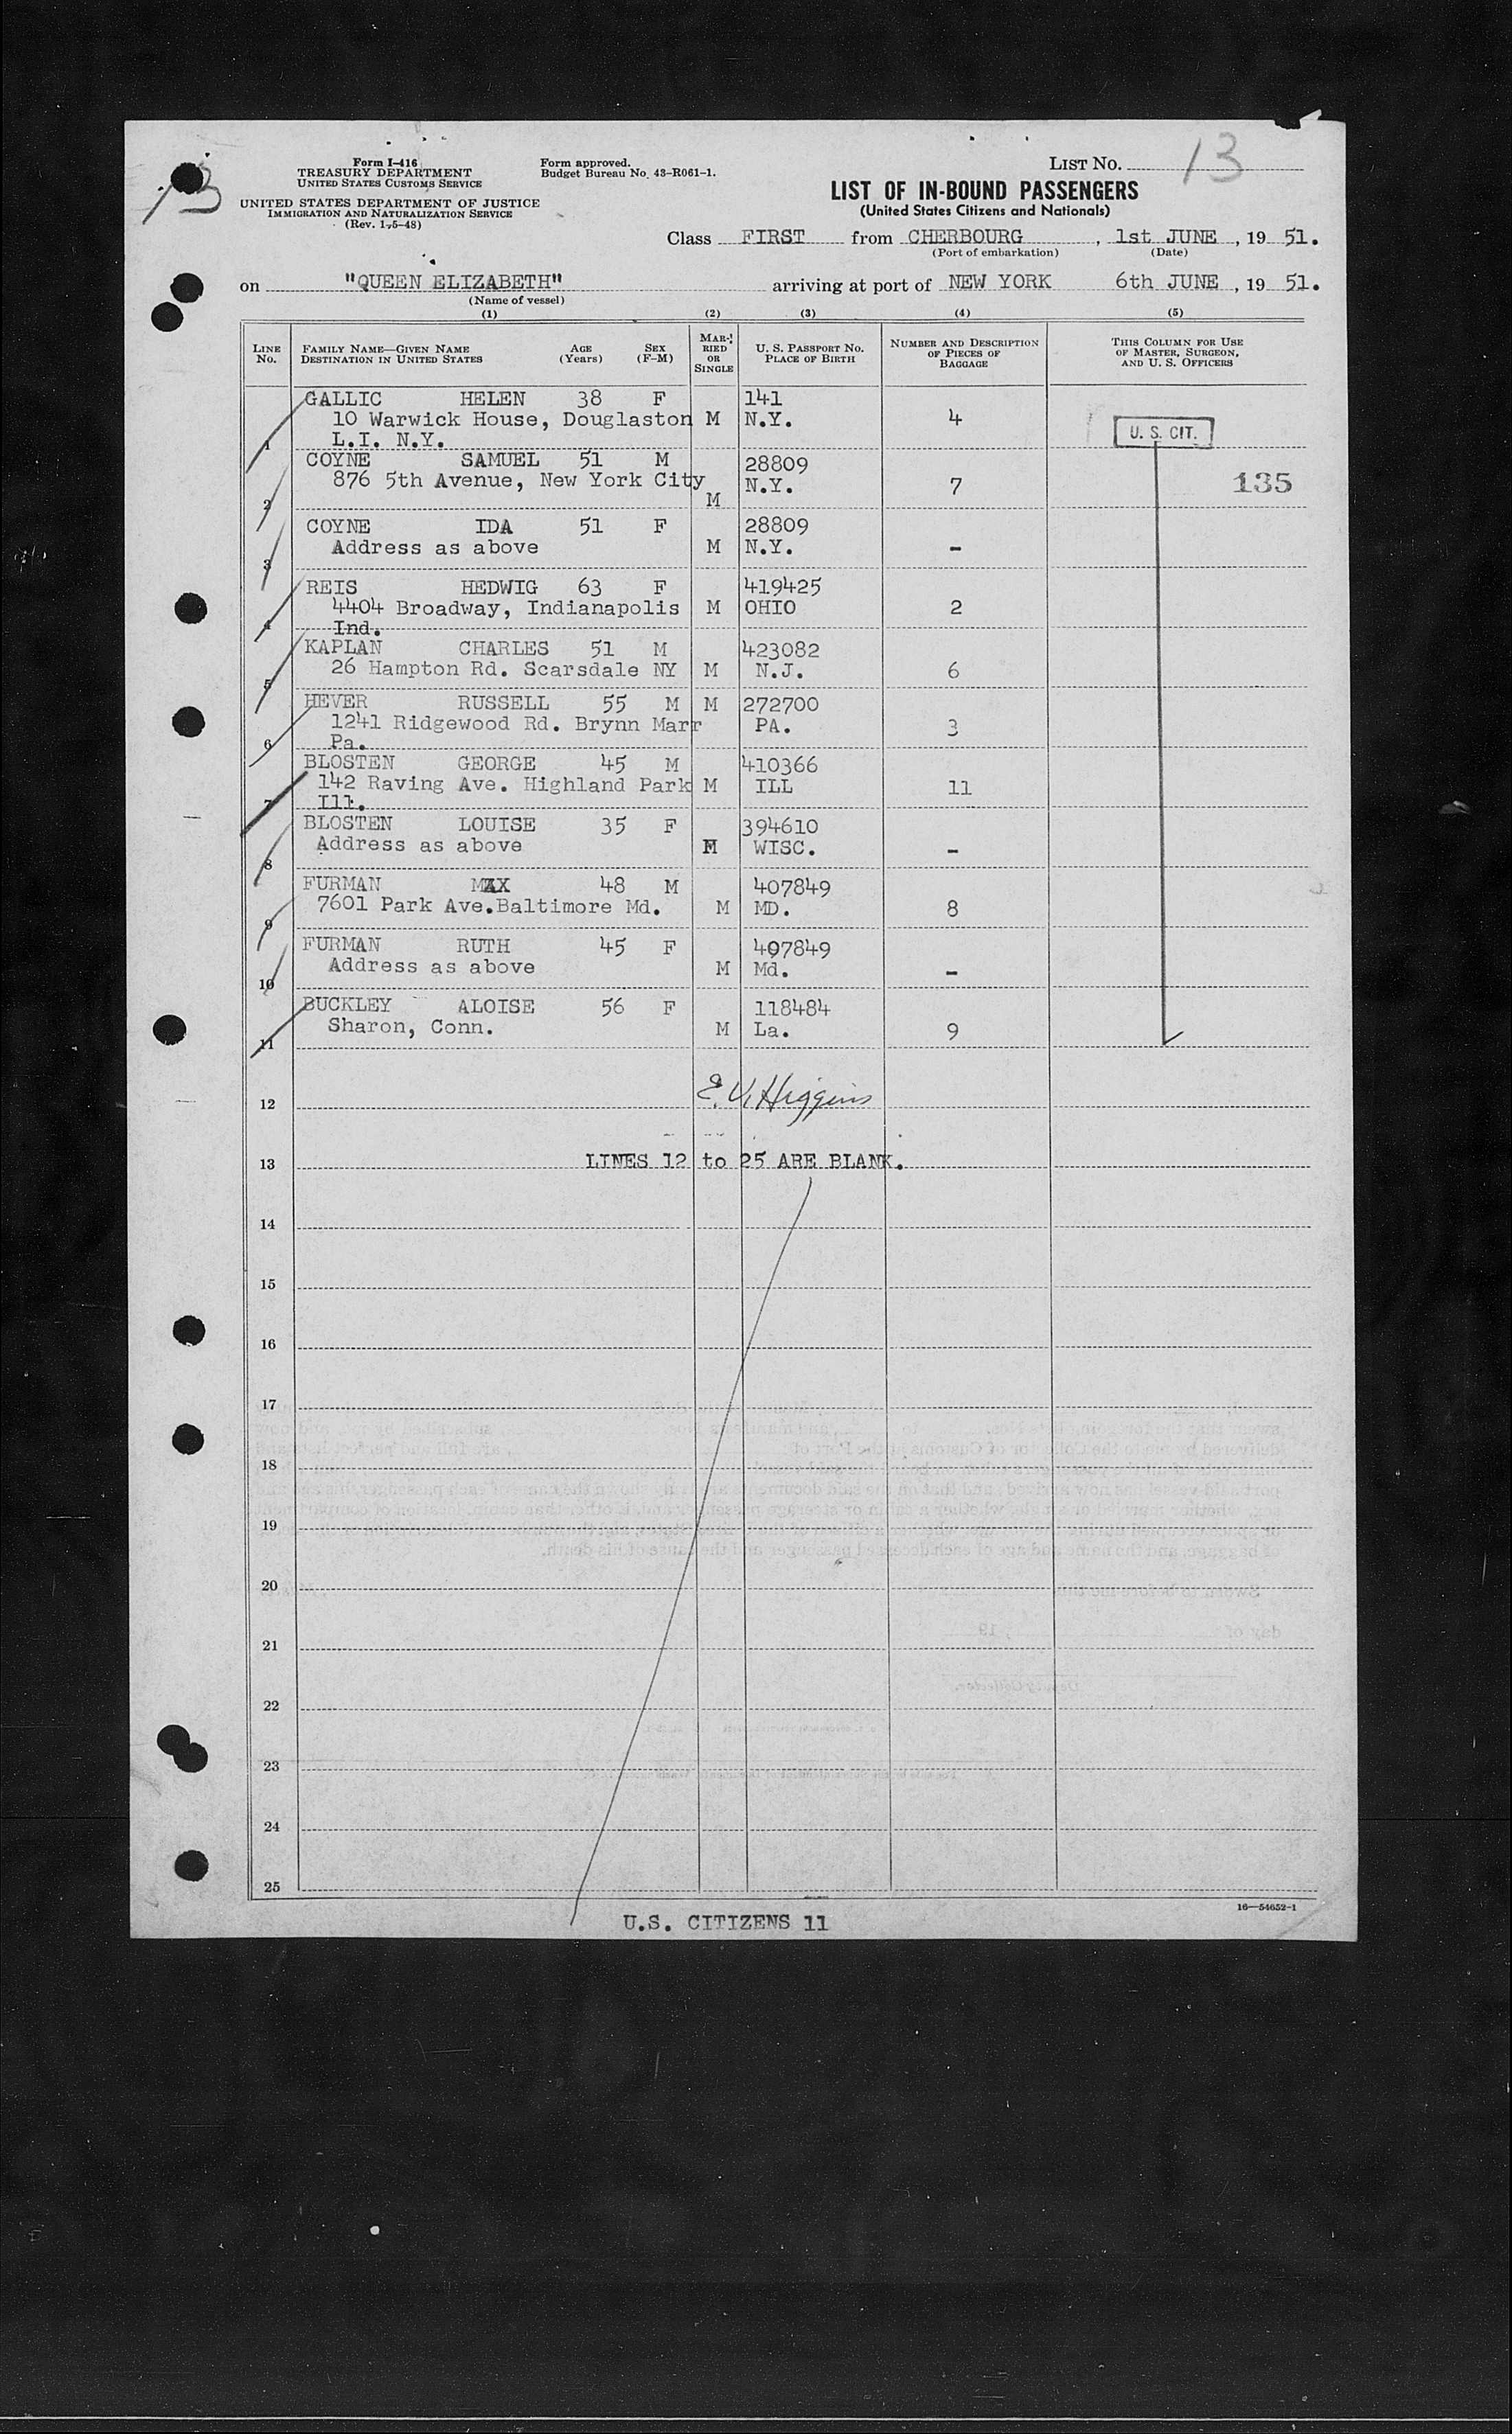 13
Form I-416
TREASURY DEPARTMENT
UNITED STATES CUSTOMS SERVICE
UNITED STATES DEPARTMENT OF JUSTICE
IMMIGRATION AND NATURALIZATION SERVICE
(Rev. 1-5-48)
Form approved.
Budget Bureau No. 43-R061-1.
LIST NO. 13
LIST OF IN-BOUND PASSENGERS
(United States Citizens and Nationals)
Class FIRST from CHERBOURG, 1st JUNE, 19 51.
(Port of embarkation) (Date)
on "QUEEN ELIZABETH" arriving at port of NEW YORK 6th JUNE, 19 51.
(Name of vessel)
(1) (2) (3) (4) (5)
LINE NO. FAMILY NAME—GIVEN NAME DESTINATION IN UNITED STATES AGE (Years) SEX (F-M) MARRIED OR SINGLE U. S. PASSPORT NO. PLACE OF BIRTH NUMBER AND DESCRIPTION OF PIECES OF BAGGAGE THIS COLUMN FOR USE OF MASTER, SURGEON, AND U. S. OFFICERS
GALLIC HELEN 38 F 141
10 Warwick House, Douglaston M N.Y. 4
1 L.I. N.Y. U. S. CIT.
COYNE SAMUEL 51 M 28809
876 5th Avenue, New York City N.Y. 7 135
2 M
COYNE IDA 51 F 28809
Address as above M N.Y. -
3
REIS HEDWIG 63 F 419425
4404 Broadway, Indianapolis M OHIO 2
4 Ind.
KAPLAN CHARLES 51 M 423082
26 Hampton Rd. Scarsdale NY M N.J. 6
5
HEVER RUSSELL 55 M M 272700
1241 Ridgewood Rd. Brynn Marr PA. 3
6 Pa.
BLOSTEN GEORGE 45 M 410366
142 Raving Ave. Highland Park M ILL 11
7 Ill.
BLOSTEN LOUISE 35 F 394610
Address as above M WISC. -
8
FURMAN MAX 48 M 407849
7601 Park Ave.Baltimore Md. M MD. 8
9
FURMAN RUTH 45 F 407849
Address as above M Md. -
10
BUCKLEY ALOISE 56 F 118484
Sharon, Conn. M La. 9
11
12 E. V. Higgins
13 LINES 12 to 25 ARE BLANK.
14
15
16
17
18
19
20
21
22
23
24
25
16—54652-1
U.S. CITIZENS 11